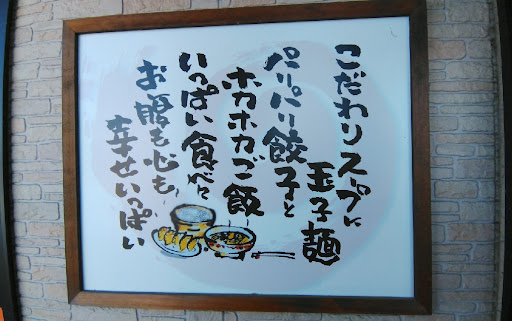 こだわりスープに
玉子麺
パリパリ餃子と
ホカホカご飯
いっぱい食べて
お腹も心も
幸せいっぱい